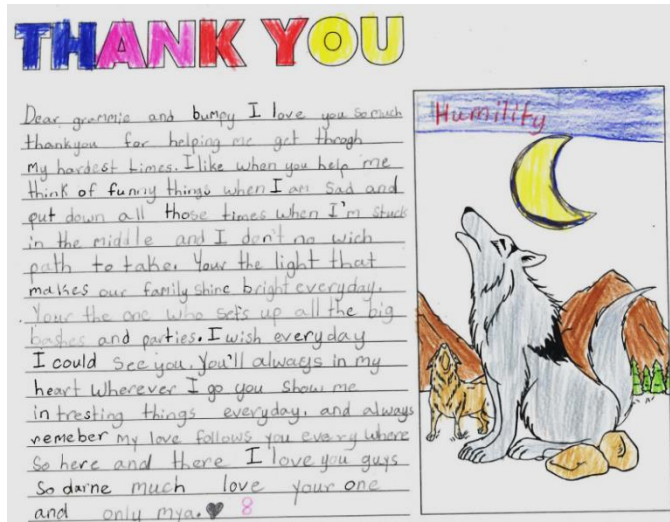 THANK YOU
Dear grammie and bumpy I love you so much
thankyou for helping me get throgh
my hardest times. I like when you help me
think of funny things when I am sad and
put down all those times when I'm stuck
in the middle and I don't no wich
path to take. Your the light that
makes our family shine bright everyday.
Your the one who sets up all the big
bashes and parties. I wish everyday
I could see you. You'll always in my
heart wherever I go you show me
in tresting things everyday. and always
remeber my love follows you every where
so here and there I love you guys
so darne much love your one
and only mya. ♥ 8
Humility